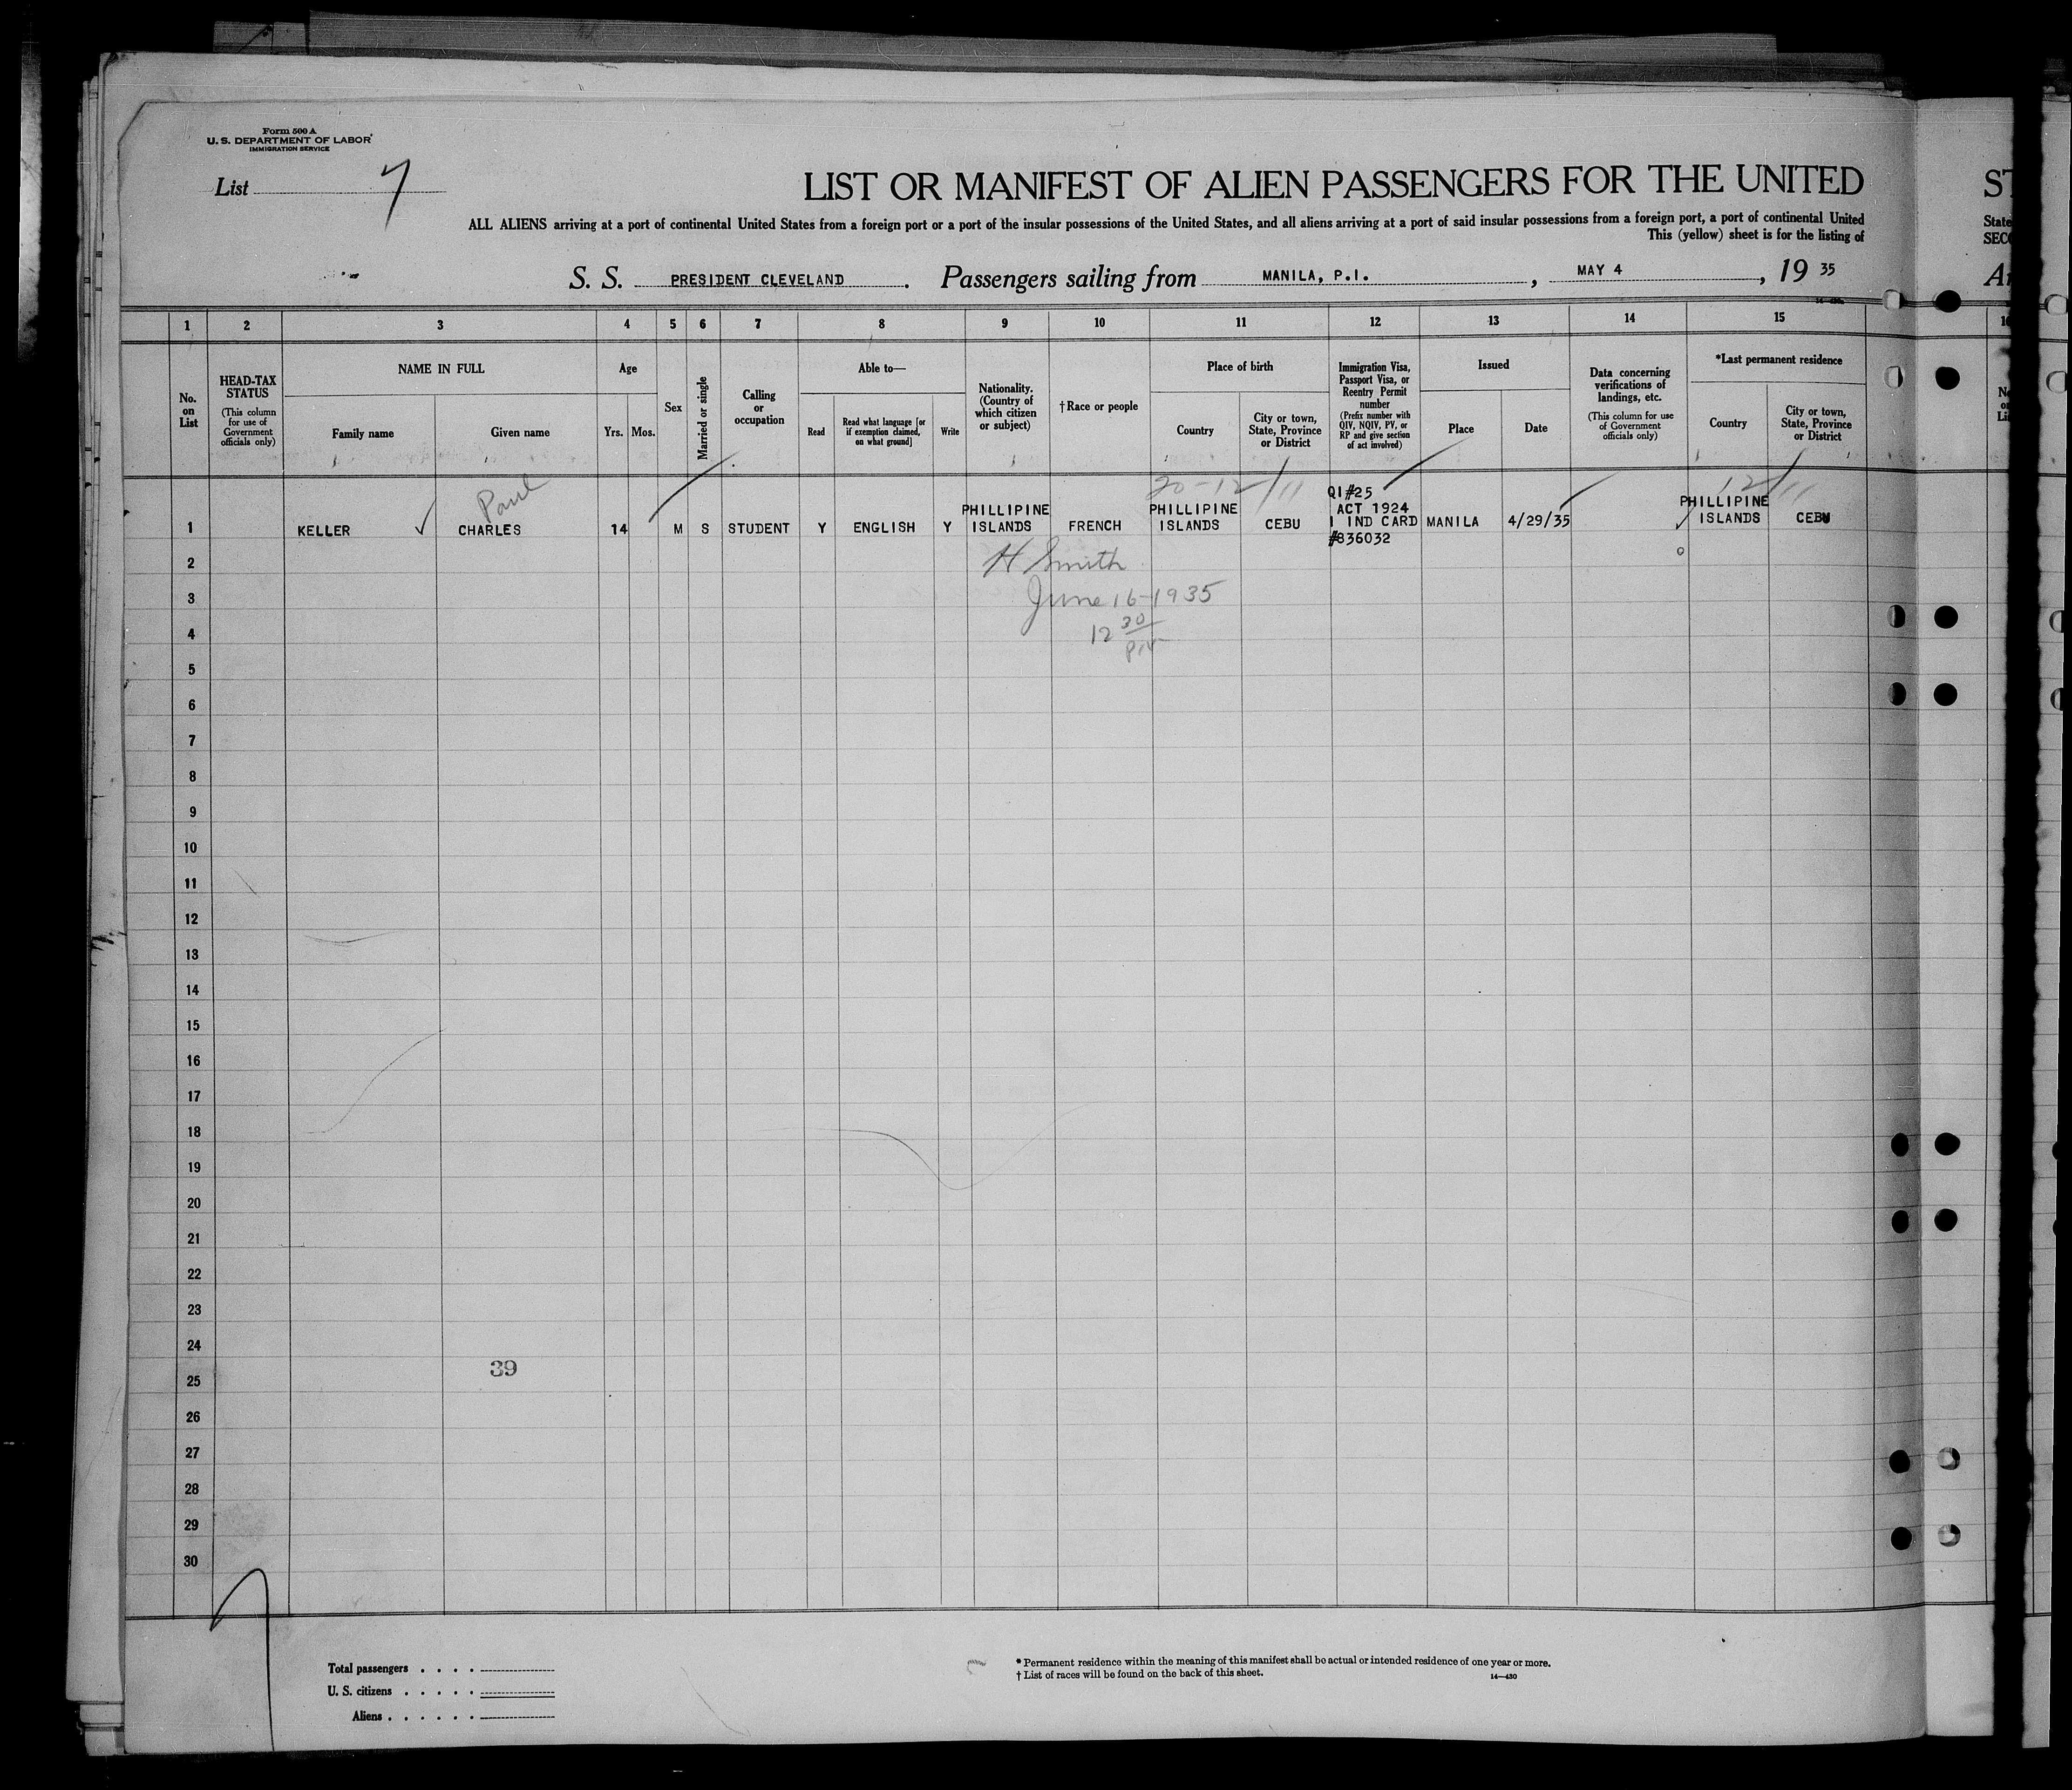 Form 500 A
U. S. DEPARTMENT OF LABOR
IMMIGRATION SERVICE
List 7
LIST OR MANIFEST OF ALIEN PASSENGERS FOR THE UNITED
ST
ALL ALIENS arriving at a port of continental United States from a foreign port or a port of the insular possessions of the United States, and all aliens arriving at a port of said insular possessions from a foreign port, a port of continental United
State
This (yellow) sheet is for the listing of
SECO
S. S. PRESIDENT CLEVELAND. Passengers sailing from MANILA, P.I., MAY 4, 19 35
1 2 3 4 5 6 7 8 9 10 11 12 13 14 15
No. on List
HEAD-TAX STATUS
(This column for use of Government officials only)
NAME IN FULL
Family name
Given name
Age
Yrs. Mos.
Sex
Married or single
Calling or occupation
Able to—
Read
Read what language [or if exemption claimed, on what ground]
Write
Nationality. (Country of which citizen or subject)
†Race or people
Place of birth
Country
City or town, State, Province or District
Immigration Visa, Passport Visa, or Reentry Permit number
(Prefix number with QIV, NQIV, PV, or RP and give section of act involved)
Issued
Place
Date
Data concerning verifications of landings, etc.
(This column for use of Government officials only)
*Last permanent residence
Country
City or town, State, Province or District
Paul
20-12/11
12/11
1 KELLER CHARLES 14 M S STUDENT Y ENGLISH Y PHILLIPINE ISLANDS FRENCH PHILLIPINE ISLANDS CEBU QI#25 ACT 1924 IND CARD #836032 MANILA 4/29/35 PHILLIPINE ISLANDS CEBU
2
H Smith
3
June 16-1935
4
12 30
5
6
7
8
9
10
11
12
13
14
15
16
17
18
19
20
21
22
23
24
39
25
26
27
28
29
30
Total passengers . . . .
U. S. citizens . . . . .
Aliens . . . . . .
* Permanent residence within the meaning of this manifest shall be actual or intended residence of one year or more.
† List of races will be found on the back of this sheet.
14—430